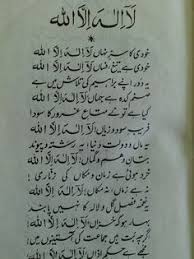 لَآ اِلٰہَ اِلَّا اللّٰہ
خودی کا سِرِّ نہاں لَآ اِلٰہَ اِلَّا اللّٰہ
خودی ہے تیغ، فساں لَآ اِلٰہَ اِلَّا اللّٰہ
یہ دور اپنے براہیم کی تلاش میں ہے
صنم کدہ ہے جہاں لَآ اِلٰہَ اِلَّا اللّٰہ
کیا ہے تو نے متاعِ غرور کا سودا
فریبِ سود و زیاں لَآ اِلٰہَ اِلَّا اللّٰہ
یہ مال و دولتِ دنیا، یہ رشتہ و پیوند
بتانِ وہم و گماں، لَآ اِلٰہَ اِلَّا اللّٰہ
خرد ہوئی ہے زمان و مکاں کی زناری
نہ ہے زماں نہ مکاں لَآ اِلٰہَ اِلَّا اللّٰہ
یہ نغمہ فصلِ گل و لالہ کا نہیں پابند
بہار ہو کہ خزاں لَآ اِلٰہَ اِلَّا اللّٰہ
اگرچہ بت ہیں جماعت کی آستینوں میں
مجھے ہے حکمِ اذاں لَآ اِلٰہَ اِلَّا اللّٰہ